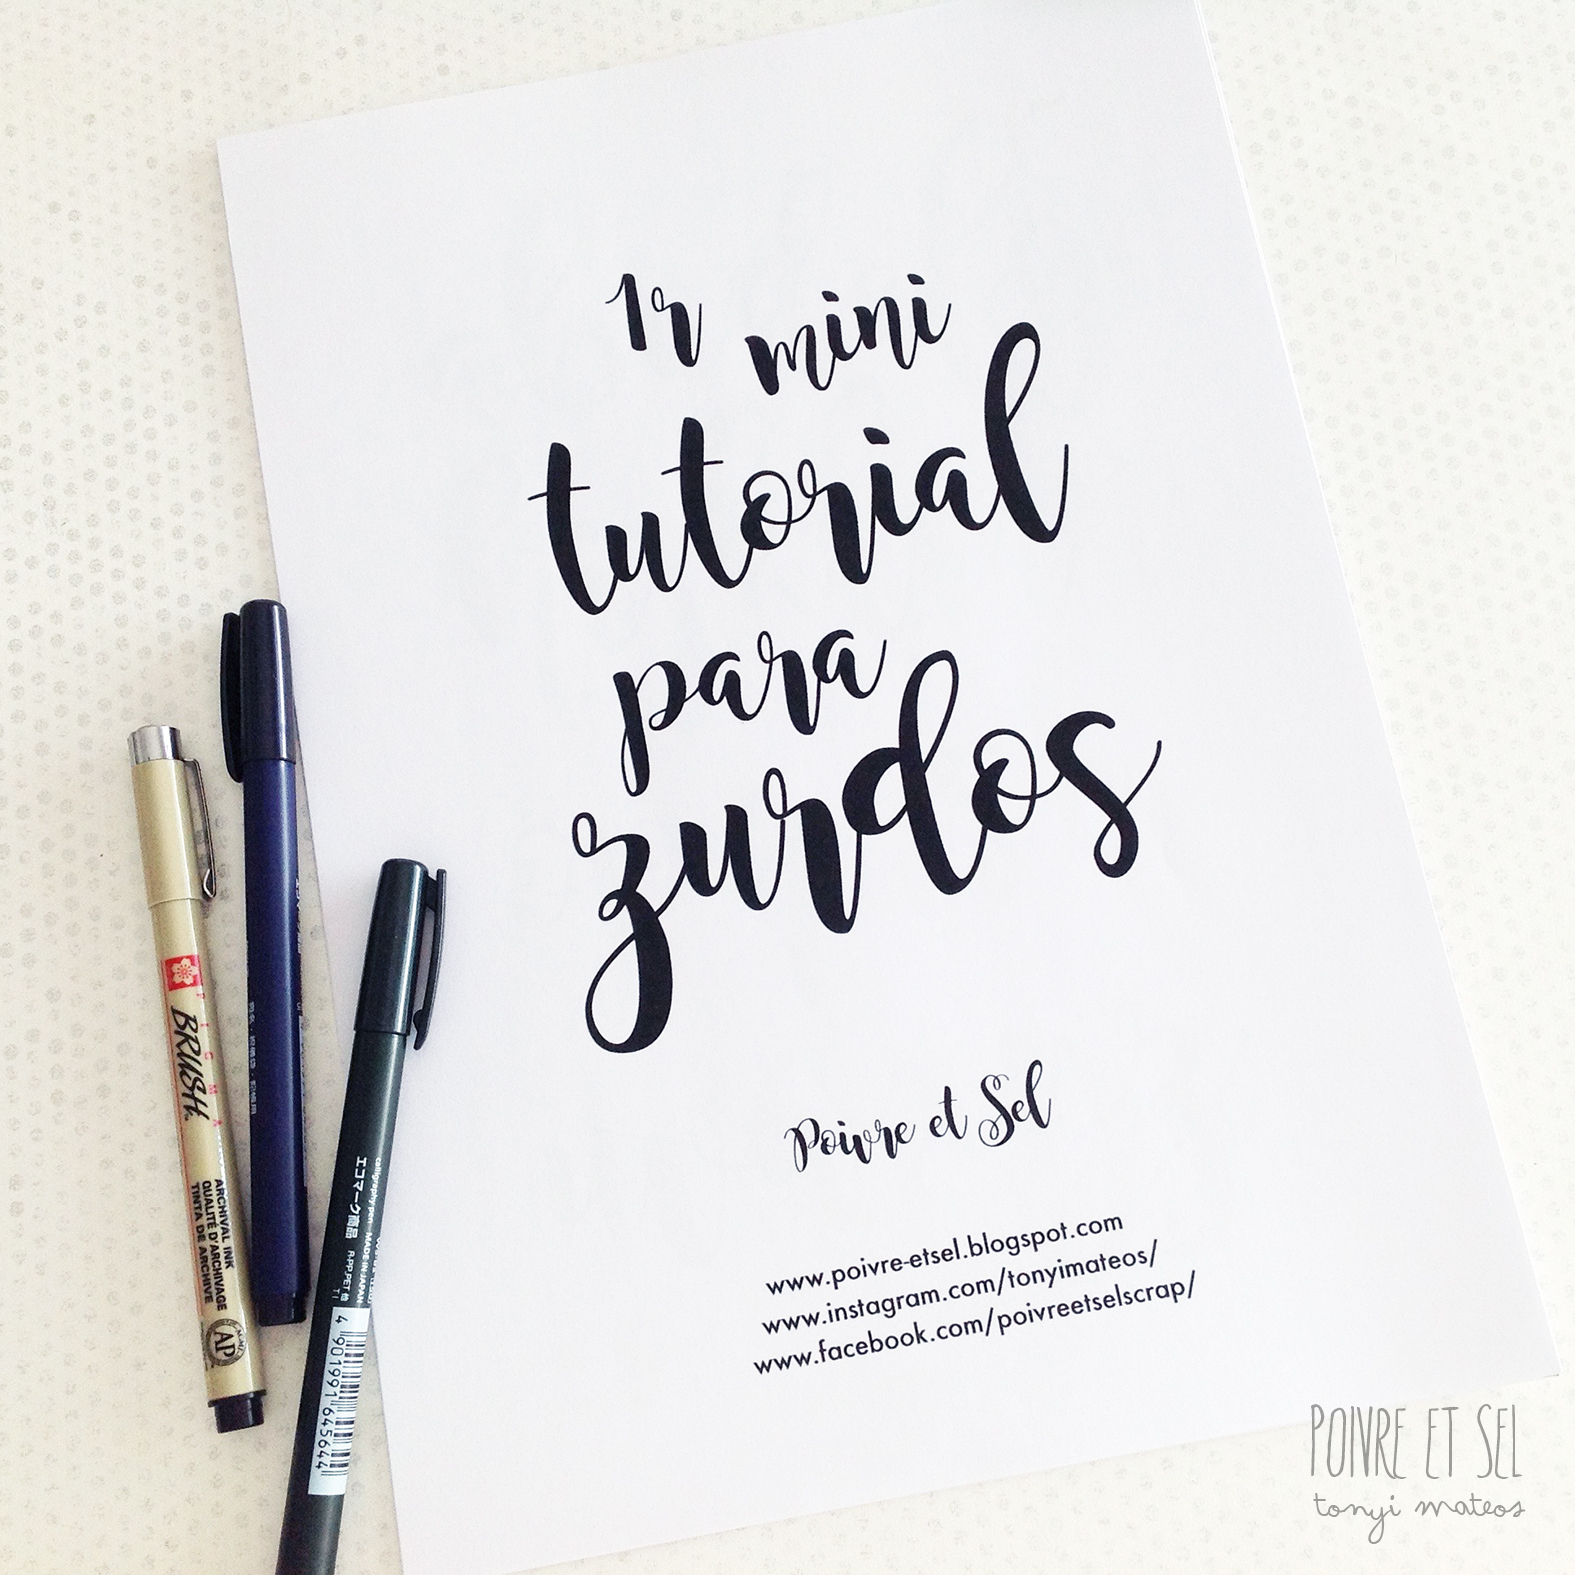 1r mini
tutorial
para
zurdos
Poivre et Sel
www.poivre-etsel.blogspot.com
www.instagram.com/tonyimateos/
www.facebook.com/poivreetselscrap/
PIGMA
BRUSH
ARCHIVAL INK
QUALITÉ D'ARCHIVAGE
TINTA DE ARCHIVE
AP
calligraphy pen MADE IN JAPAN
エコマーク商品 A-PP,PET 他
4 901991 645644
POIVRE ET SEL
tonyi mateos